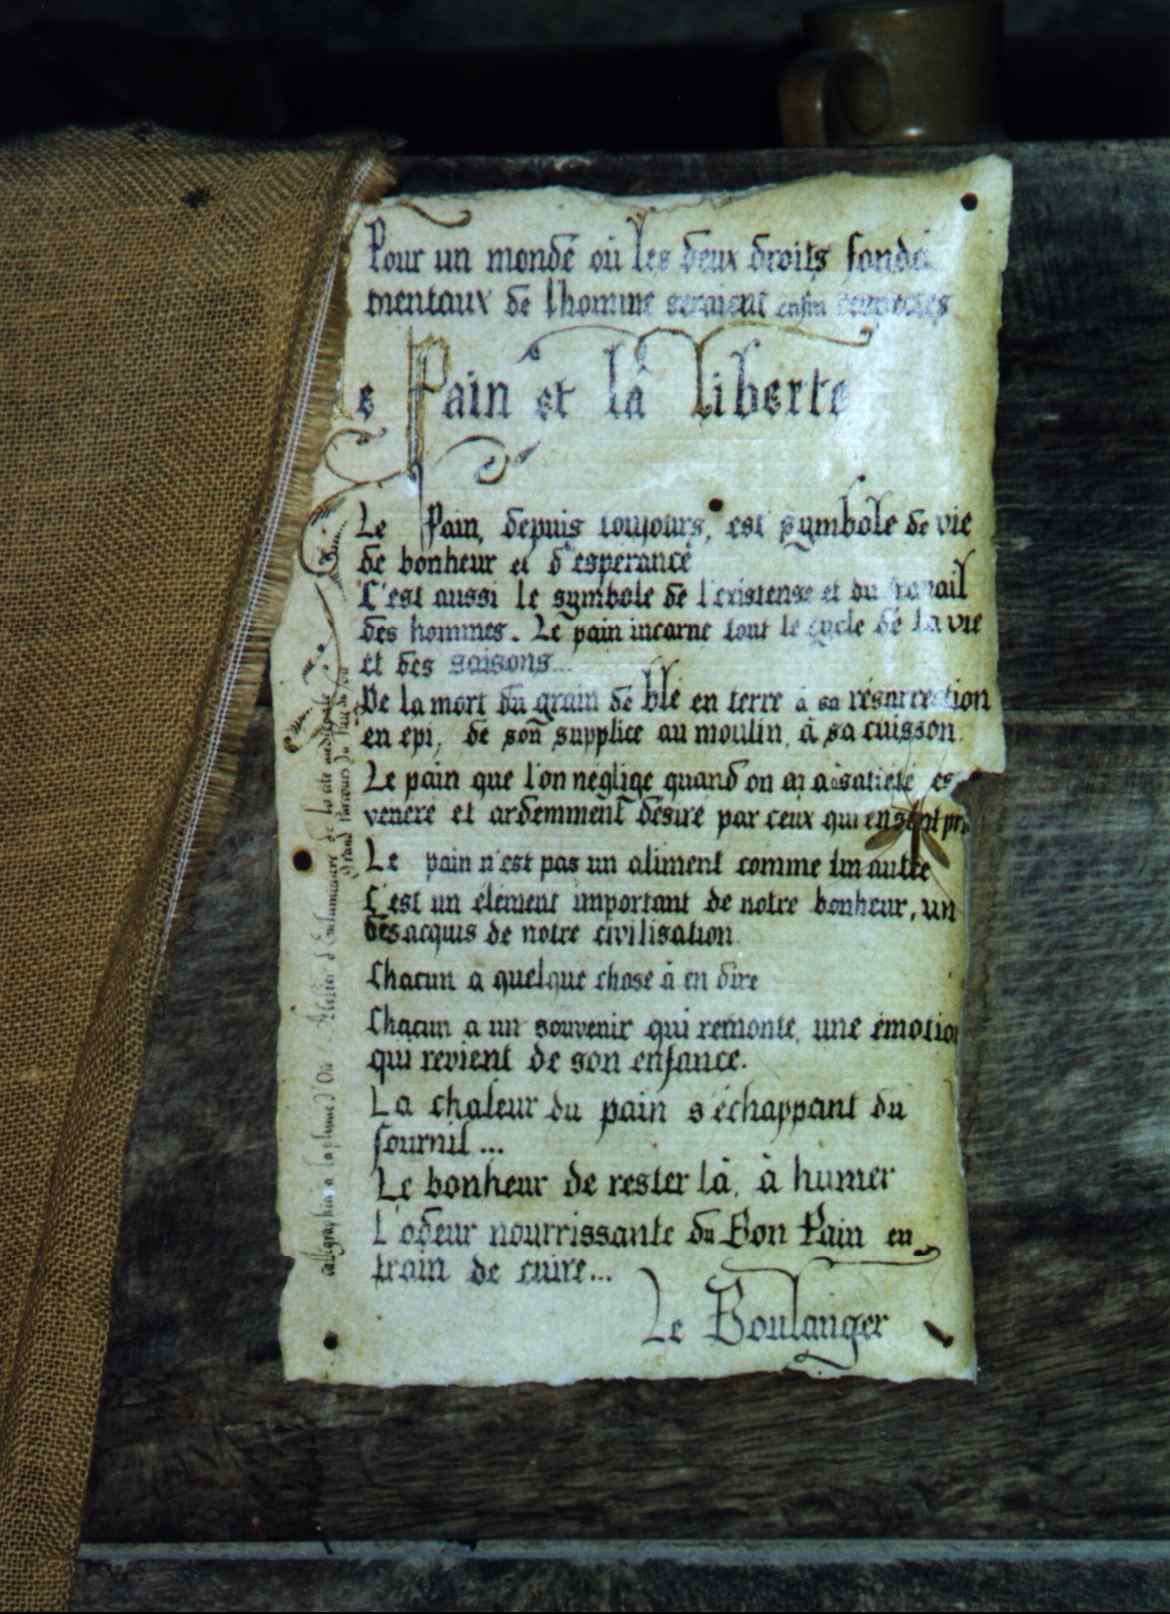 Pour un monde où les deux droits fonda
mentaux de l'homme seraient enfin respectés
Le Pain et la liberte
Le Pain, depuis toujours, est symbole de vie
de bonheur et d'esperance
C'est aussi le symbole de l'existense et du travail
des hommes. Le pain incarne tout le cycle de la vie
et des saisons...
De la mort du grain de blé en terre à sa résurrection
en epi, de son supplice au moulin, à sa cuisson.
Le pain que l'on neglige quand on ai a satiété es
venéré et ardemment désiré par ceux qui en sont pri
Le pain n'est pas un aliment comme un autre
C'est un élément important de notre bonheur, un
des acquis de notre civilisation.
Chacun a quelque chose à en dire
Chacun a un souvenir qui remonte, une émotion
qui revient de son enfance.
La chaleur du pain s'échappant du
fournil...
Le bonheur de rester là, à humer
L'odeur nourrissante du Bon Pain en
train de cuire...
Le Boulanger
Calligraphié a la plume d'Oie - Atelier d'Enluminure de la cité médiévale